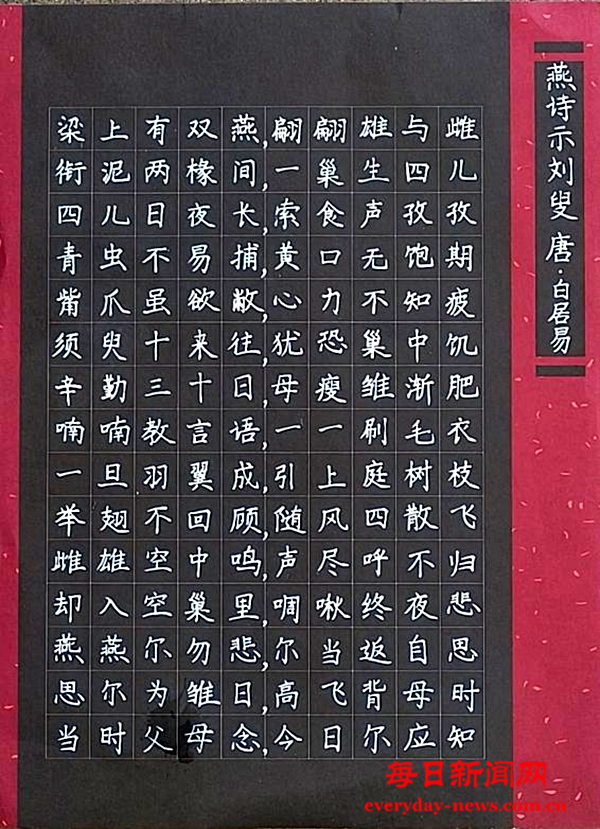 燕诗示刘叟 唐·白居易
梁上有双燕,翩翩雄与雌
衔泥两椽间,一巢生四儿
四儿日夜长,索食声孜孜
青虫不易捕,黄口无饱期
觜爪虽欲敝,心力不知疲
须臾十来往,犹恐巢中饥
辛勤三十日,母瘦雏渐肥
喃喃教言语,一一刷毛衣
一旦羽翼成,引上庭树枝
举翅不回顾,随风四散飞
雌雄空中鸣,声尽呼不归
却入空巢里,啁啾终夜悲
燕燕尔勿悲,尔当返自思
思尔为雏日,高飞背母时
当时父母念,今日尔应知
每日新闻网
everyday-news.com.cn